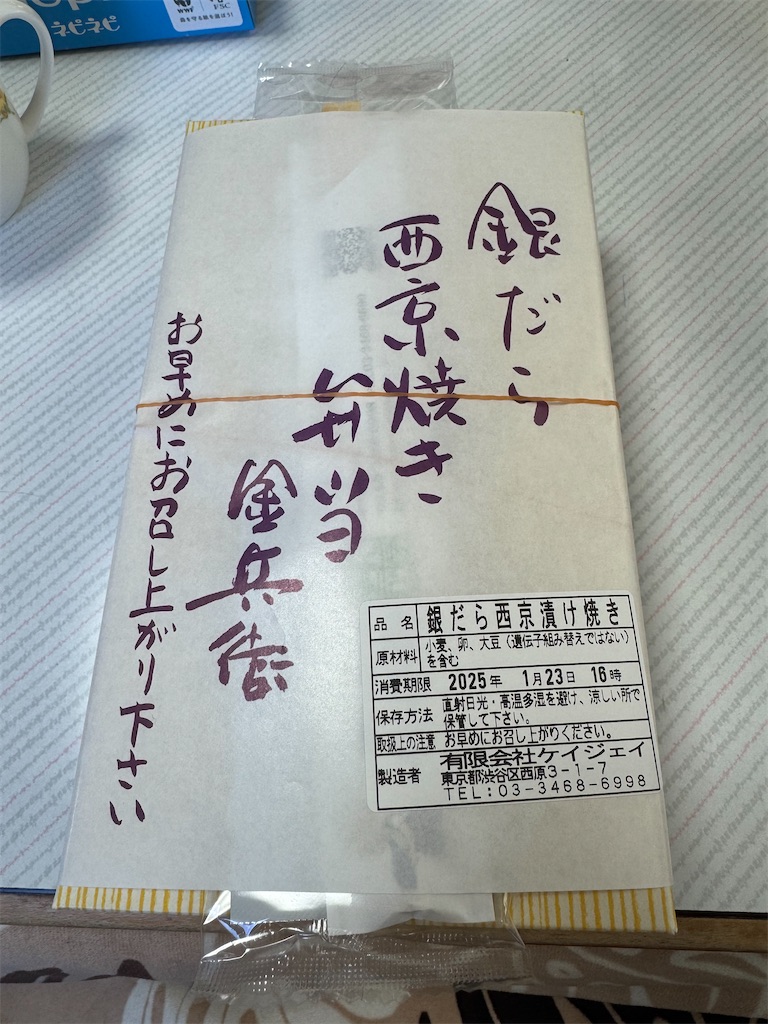 ネピネピ
WWF
FSC
森を守る紙を選ぼう!
銀だら
西京焼き
弁当
金兵衛
お早めにお召し上がり下さい
品名 銀だら西京漬け焼き
原材料 小麦、卵、大豆(遺伝子組み替えではない)
を含む
消費期限 2025年 1月23日 16時
保存方法 直射日光・高温多湿を避け、涼しい所で
保管して下さい。
取扱上の注意 お早めにお召し上がりください。
製造者 有限会社ケイジェイ
東京都渋谷区西原3-1-7
TEL:03-3468-6998